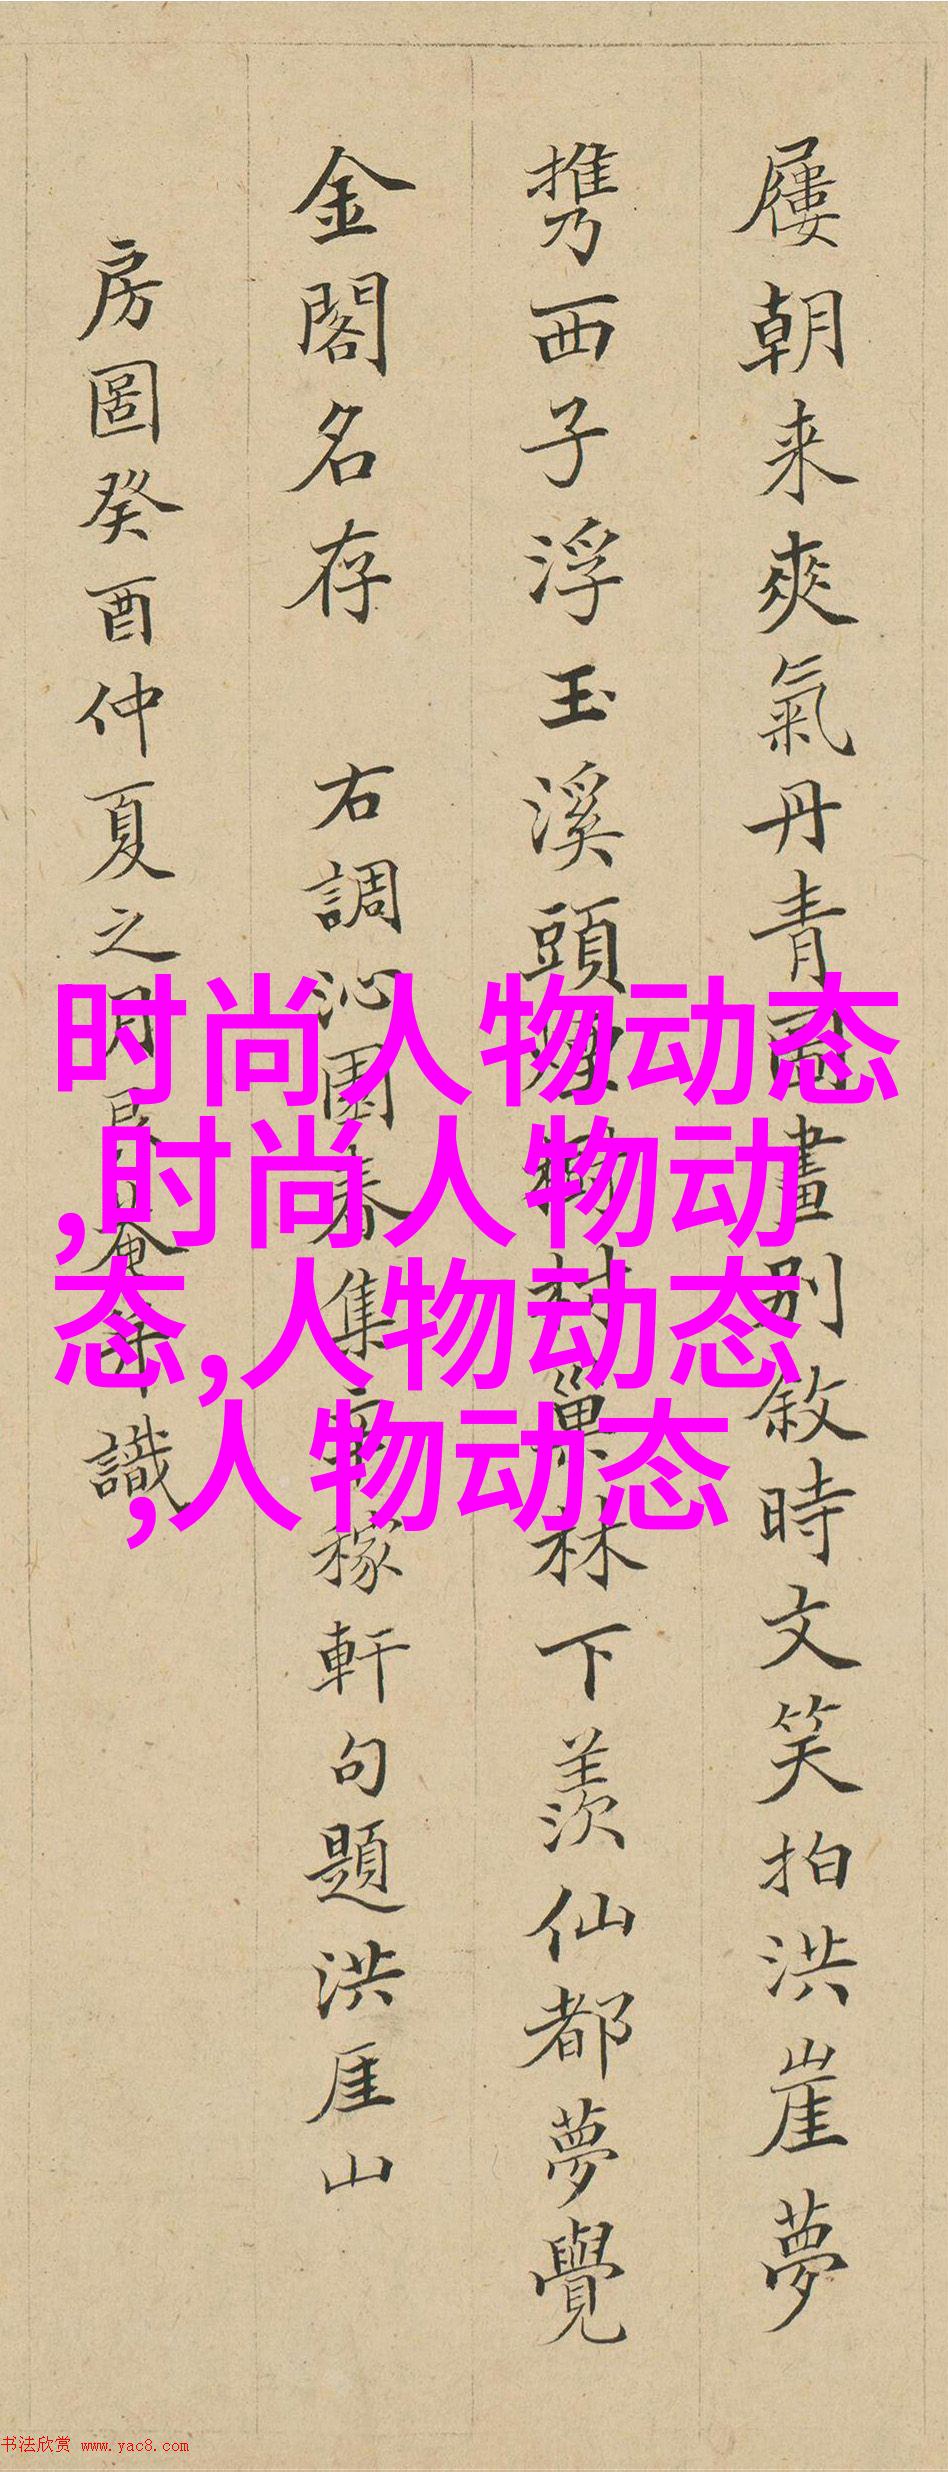 屨朝来爽氣丹青圖畫别敘時文笑拍洪崖夢
攜西子浮玉溪頭煙樹村巢林下羨仙都夢覺
金閣名存 右調沁園春集辛稼軒句題洪厓山
房圖癸酉仲夏之月 識
时尚人物动态
,时尚人物动
态,人物动态
,人物动态
书法欣赏 www.yac8.com